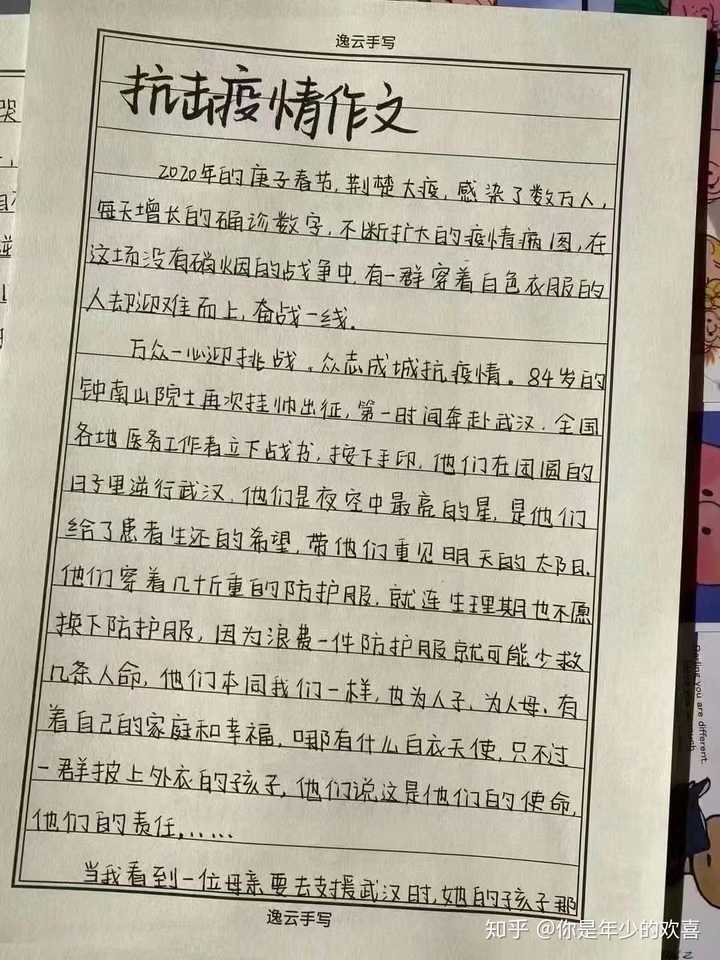 逸云手写
抗击疫情作文
2020年的庚子春节，荆楚大疫，感染了数万人，
每天增长的确诊数字，不断扩大的疫情病图，在
这场没有硝烟的战争中，有一群穿着白色衣服的
人却迎难而上，奋战一线。
万众一心迎挑战，众志成城抗疫情。84岁的
钟南山院士再次挂帅出征，第一时间奔赴武汉．全国
各地医务工作者立下战书，按下手印，他们在团圆的
日子里逆行武汉，他们是夜空中最亮的星，是他们
给了患者生还的希望，带他们重见明天的太阳．
他们穿着几十斤重的防护服，就连生理期也不愿
换下防护服，因为浪费一件防护服就可能少救
几条人命，他们本同我们一样，也为人子，为人母，有
着自己的家庭和幸福，哪有什么白衣天使，只不过
一群披上外衣的孩子，他们说这是他们的使命，
他们的责任……
当我看到一位母亲要去支援武汉时，她的孩子那
逸云手写
知乎 @你是年少的欢喜
you are different.
哭